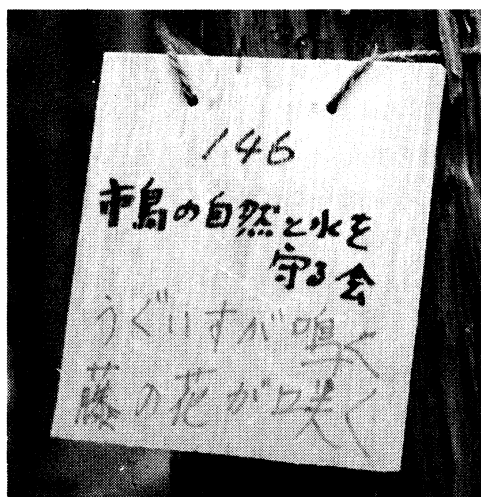 146
市島の自然と水を
守る会
うぐいすが鳴く
藤の花が咲く